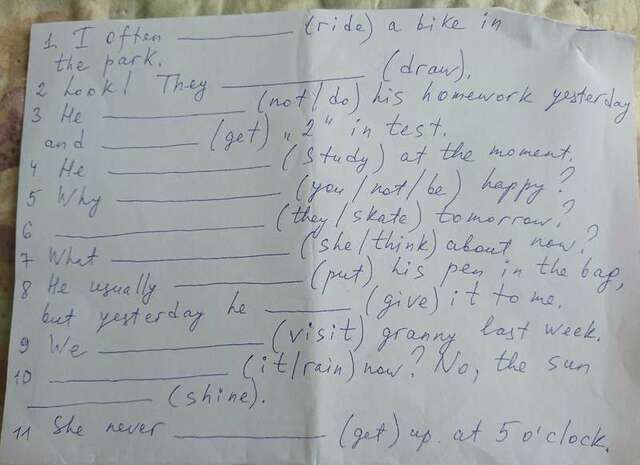 1 I often ________ (ride) a bike in
the park.
2 Look! They ________ (draw).
3 He ________ (not/do) his homework yesterday
and ________ (get) „2" in test.
4 He ________ (study) at the moment.
5 Why ________ (you/not/be) happy?
6 ________ (they/skate) tomorrow?
7 What ________ (she/think) about now?
8 He usually ________ (put) his pen in the bag,
but yesterday he ________ (give) it to me.
9 We ________ (visit) granny last week.
10 ________ (it/rain) now? No, the sun
________ (shine).
11 She never ________ (get) up at 5 o'clock.